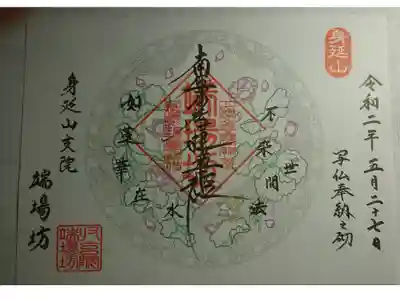 身延山
令和二年五月二十七日
写仏奉納之砌
不染世間法
南無妙法蓮華経
如蓮華在水
身延山支院
端場坊